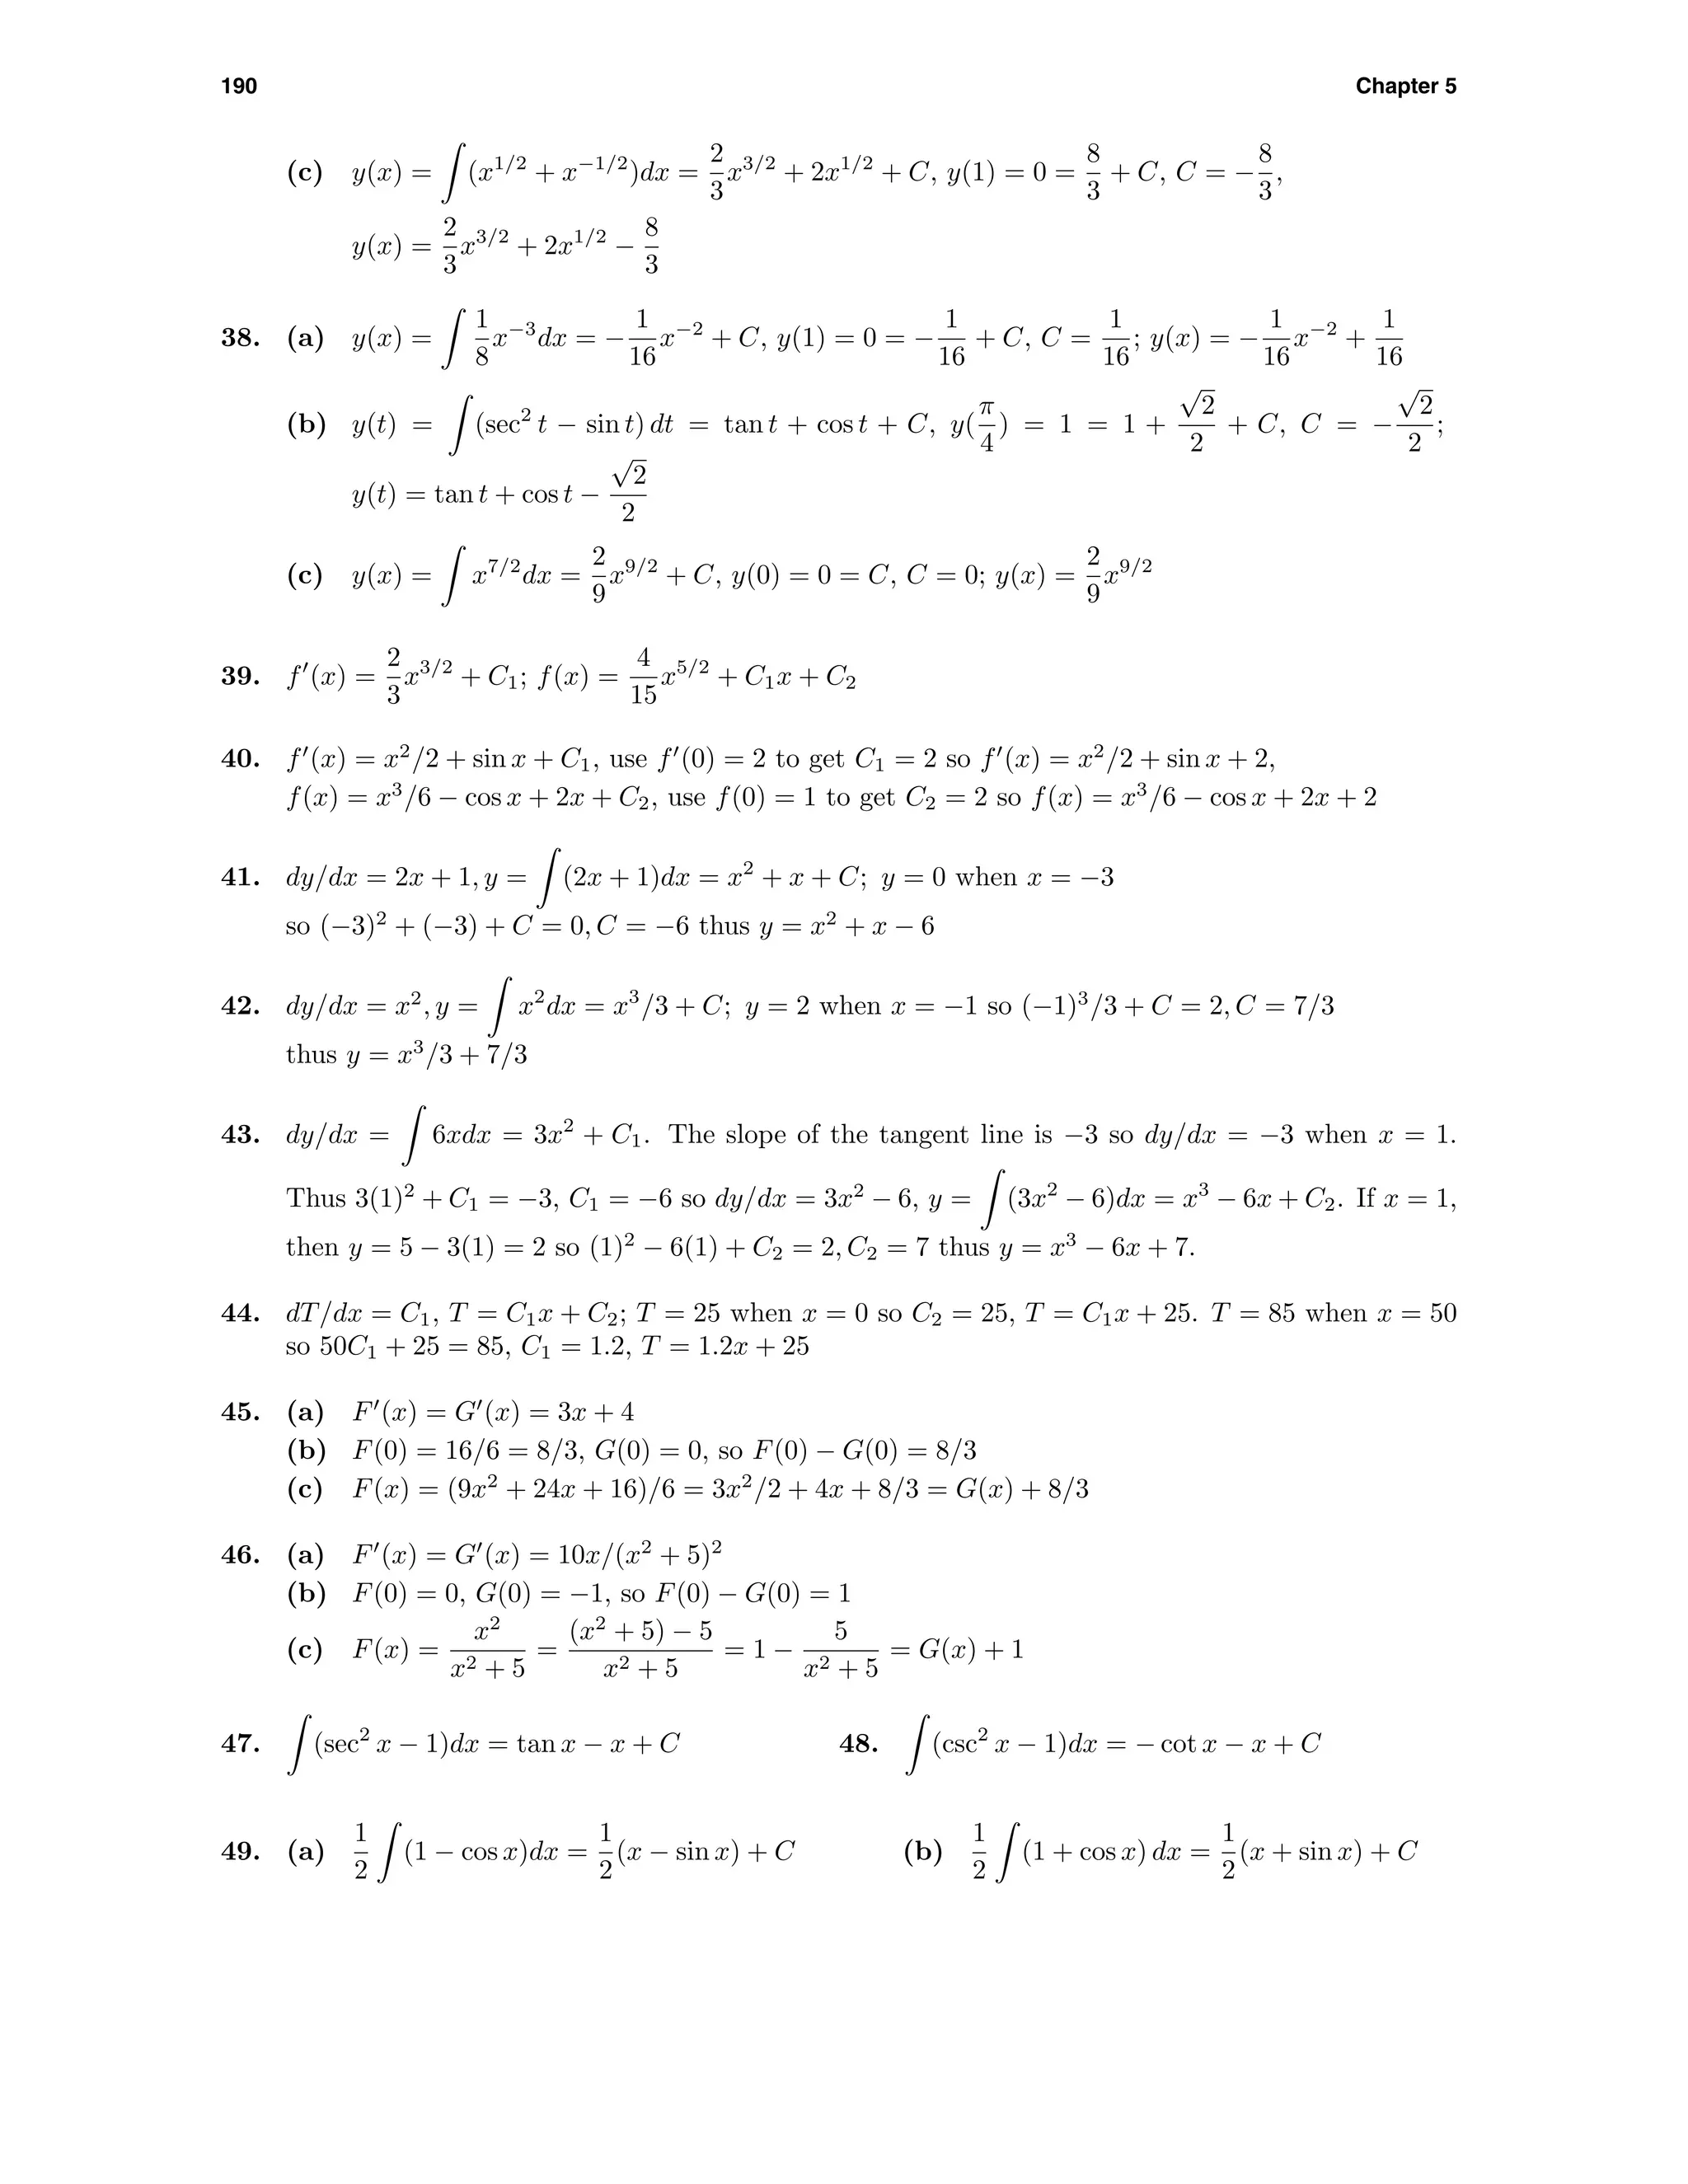 190 Chapter 5
(c) y(x) = ∫ (x^{1/2} + x^{−1/2})dx = \frac{2}{3}x^{3/2} + 2x^{1/2} + C, y(1) = 0 = \frac{8}{3} + C, C = −\frac{8}{3},
y(x) = \frac{2}{3}x^{3/2} + 2x^{1/2} − \frac{8}{3}
38. (a) y(x) = ∫ \frac{1}{8}x^{−3}dx = −\frac{1}{16}x^{−2} + C, y(1) = 0 = −\frac{1}{16} + C, C = \frac{1}{16}; y(x) = −\frac{1}{16}x^{−2} + \frac{1}{16}
(b) y(t) = ∫ (sec² t − sin t) dt = tan t + cos t + C, y(\frac{π}{4}) = 1 = 1 + \frac{√2}{2} + C, C = −\frac{√2}{2};
y(t) = tan t + cos t − \frac{√2}{2}
(c) y(x) = ∫ x^{7/2}dx = \frac{2}{9}x^{9/2} + C, y(0) = 0 = C, C = 0; y(x) = \frac{2}{9}x^{9/2}
39. f′(x) = \frac{2}{3}x^{3/2} + C₁; f(x) = \frac{4}{15}x^{5/2} + C₁x + C₂
40. f′(x) = x²/2 + sin x + C₁, use f′(0) = 2 to get C₁ = 2 so f′(x) = x²/2 + sin x + 2,
f(x) = x³/6 − cos x + 2x + C₂, use f(0) = 1 to get C₂ = 2 so f(x) = x³/6 − cos x + 2x + 2
41. dy/dx = 2x + 1, y = ∫ (2x + 1)dx = x² + x + C; y = 0 when x = −3
so (−3)² + (−3) + C = 0, C = −6 thus y = x² + x − 6
42. dy/dx = x², y = ∫ x²dx = x³/3 + C; y = 2 when x = −1 so (−1)³/3 + C = 2, C = 7/3
thus y = x³/3 + 7/3
43. dy/dx = ∫ 6xdx = 3x² + C₁. The slope of the tangent line is −3 so dy/dx = −3 when x = 1.
Thus 3(1)² + C₁ = −3, C₁ = −6 so dy/dx = 3x² − 6, y = ∫ (3x² − 6)dx = x³ − 6x + C₂. If x = 1,
then y = 5 − 3(1) = 2 so (1)² − 6(1) + C₂ = 2, C₂ = 7 thus y = x³ − 6x + 7.
44. dT/dx = C₁, T = C₁x + C₂; T = 25 when x = 0 so C₂ = 25, T = C₁x + 25. T = 85 when x = 50
so 50C₁ + 25 = 85, C₁ = 1.2, T = 1.2x + 25
45. (a) F′(x) = G′(x) = 3x + 4
(b) F(0) = 16/6 = 8/3, G(0) = 0, so F(0) − G(0) = 8/3
(c) F(x) = (9x² + 24x + 16)/6 = 3x²/2 + 4x + 8/3 = G(x) + 8/3
46. (a) F′(x) = G′(x) = 10x/(x² + 5)²
(b) F(0) = 0, G(0) = −1, so F(0) − G(0) = 1
(c) F(x) = \frac{x²}{x² + 5} = \frac{(x² + 5) − 5}{x² + 5} = 1 − \frac{5}{x² + 5} = G(x) + 1
47. ∫ (sec² x − 1)dx = tan x − x + C 48. ∫ (csc² x − 1)dx = − cot x − x + C
49. (a) \frac{1}{2} ∫ (1 − cos x)dx = \frac{1}{2}(x − sin x) + C (b) \frac{1}{2} ∫ (1 + cos x) dx = \frac{1}{2}(x + sin x) + C